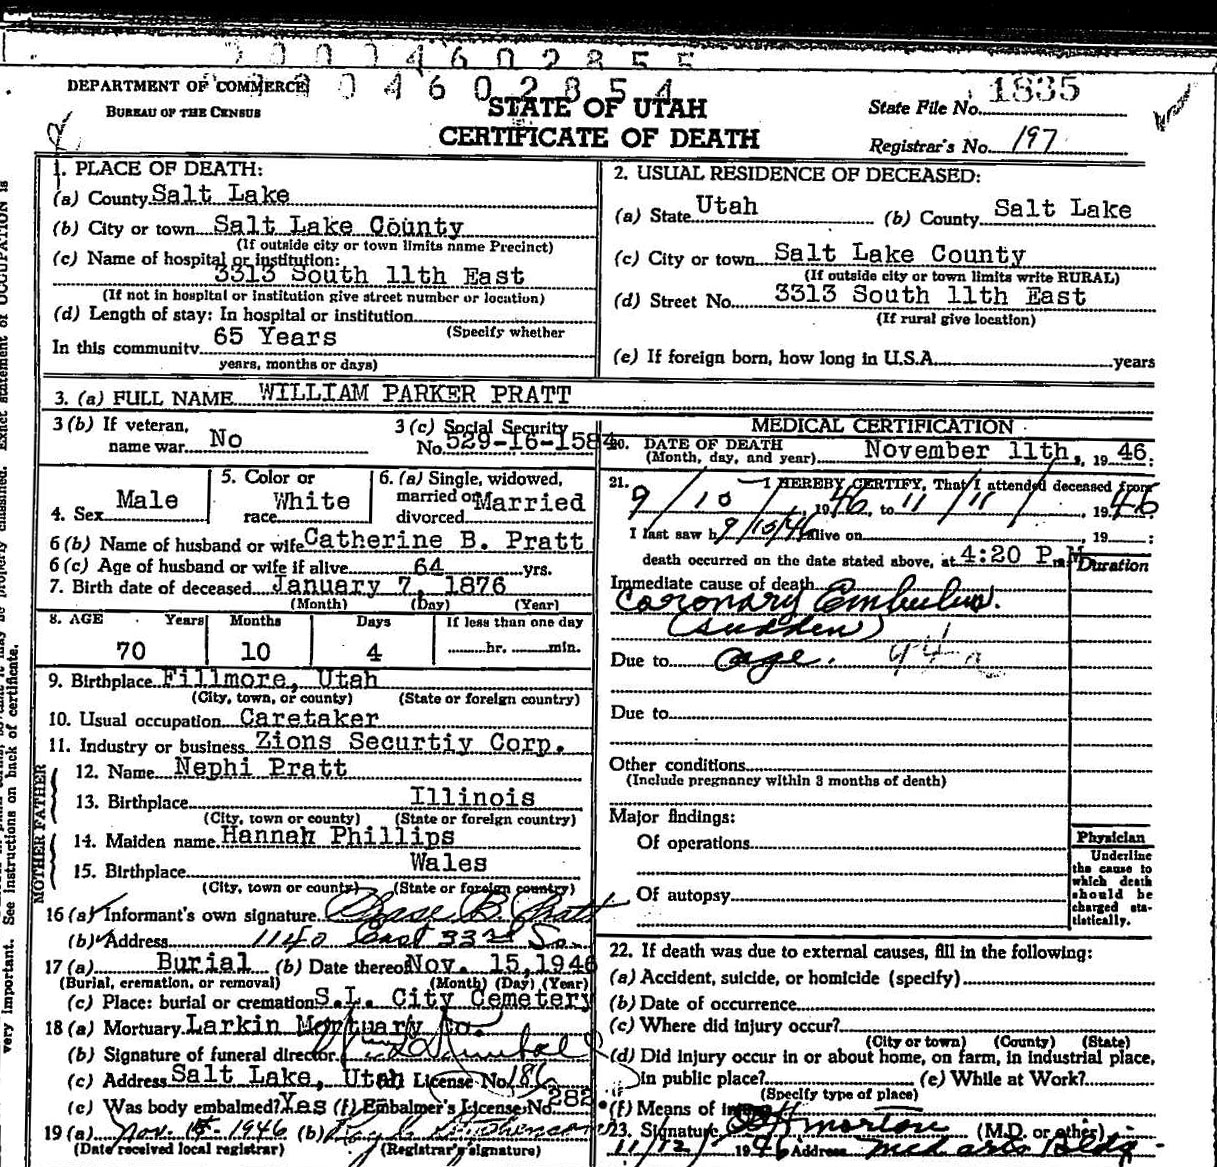 20004602855
DEPARTMENT OF COMMERCE
BUREAU OF THE CENSUS
04602854
STATE OF UTAH
CERTIFICATE OF DEATH
State File No. 1835
Registrar's No. 197
1. PLACE OF DEATH:
(a) County Salt Lake
(b) City or town Salt Lake County
(If outside city or town limits name Precinct)
(c) Name of hospital or institution:
3313 South 11th East
(If not in hospital or institution give street number or location)
(d) Length of stay: In hospital or institution
(Specify whether
In this community 65 Years
years, months or days)
2. USUAL RESIDENCE OF DECEASED:
(a) State Utah (b) County Salt Lake
(c) City or town Salt Lake County
(If outside city or town limits write RURAL)
(d) Street No. 3313 South 11th East
(If rural give location)
(e) If foreign born, how long in U.S.A. years
3. (a) FULL NAME WILLIAM PARKER PRATT
3 (b) If veteran, name war No
3 (c) Social Security No. 529-16-1584
4. Sex Male
5. Color or race White
6. (a) Single, widowed, married or divorced Married
6 (b) Name of husband or wife Catherine B. Pratt
6 (c) Age of husband or wife if alive 64 yrs.
7. Birth date of deceased January 7, 1876
(Month) (Day) (Year)
8. AGE Years Months Days If less than one day
70 10 4 hr. min.
9. Birthplace Fillmore, Utah
(City, town, or county) (State or foreign country)
10. Usual occupation Caretaker
11. Industry or business Zions Securtiy Corp.
FATHER
12. Name Nephi Pratt
13. Birthplace Illinois
(City, town or county) (State or foreign country)
MOTHER
14. Maiden name Hannah Phillips
15. Birthplace Wales
(City, town or county) (State or foreign country)
16 (a) Informant's own signature B. Pratt
(b) Address 1140 East 33rd So.
17 (a) Burial (b) Date thereof Nov. 15, 1946
(Burial, cremation, or removal) (Month) (Day) (Year)
(c) Place: burial or cremation S.L. City Cemetery
18 (a) Mortuary Larkin Mortuary Co.
(b) Signature of funeral director
(c) Address Salt Lake, Utah License No. 186
(e) Was body embalmed? Yes (f) Embalmer's License No. 282
19 (a) Nov. 15 1946 (b)
(Date received local registrar) (Registrar's signature)
MEDICAL CERTIFICATION
20. DATE OF DEATH
(Month, day, and year) November 11th, 1946:
21. I HEREBY CERTIFY, That I attended deceased from
9/10, 1946, to 11/11/, 1946
I last saw h 9/10/46 alive on , 19 :
death occurred on the date stated above, at 4:20 P.M.
Duration
Immediate cause of death
Coronary Embulus.
(sudden)
Due to age. 94a
Due to
Other conditions
(Include pregnancy within 3 months of death)
Major findings:
Of operations
Of autopsy
Physician
Underline
the cause to
which death
should be
charged sta-
tistically.
22. If death was due to external causes, fill in the following:
(a) Accident, suicide, or homicide (specify)
(b) Date of occurrence
(c) Where did injury occur?
(City or town) (County) (State)
(d) Did injury occur in or about home, on farm, in industrial place,
in public place? (e) While at Work?
(Specify type of place)
(f) Means of
23. Signature Morton (M.D. or other)
11/12/ 1946 Address Med arts Bldg.
Exact statement of OCCUPATION is
very important. See instructions on back of certificate.